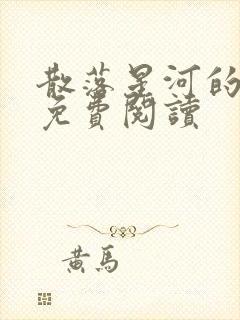 散落星河的
免費閱讀
黃馬